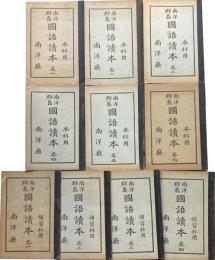 本科用
南洋群島
國語讀本 卷
南洋廳
本科用
南洋群島
國語讀本 卷
南洋廳
本科用
南洋群島
國語讀本 卷
南洋廳
本科用
南洋群島
國語讀本 卷四
南洋廳
本科用
南洋群島
國語讀本 卷五
南洋廳
本科用
南洋群島
國語讀本 卷六
南洋廳
補習科用
南洋群島
國語讀本 卷
南洋廳
補習科用
南洋群島
國語讀本 卷
南洋廳
補習科用
南洋群島
國語讀本 卷
南洋廳
補習科用
南洋群島
國語讀本 卷四
南洋廳